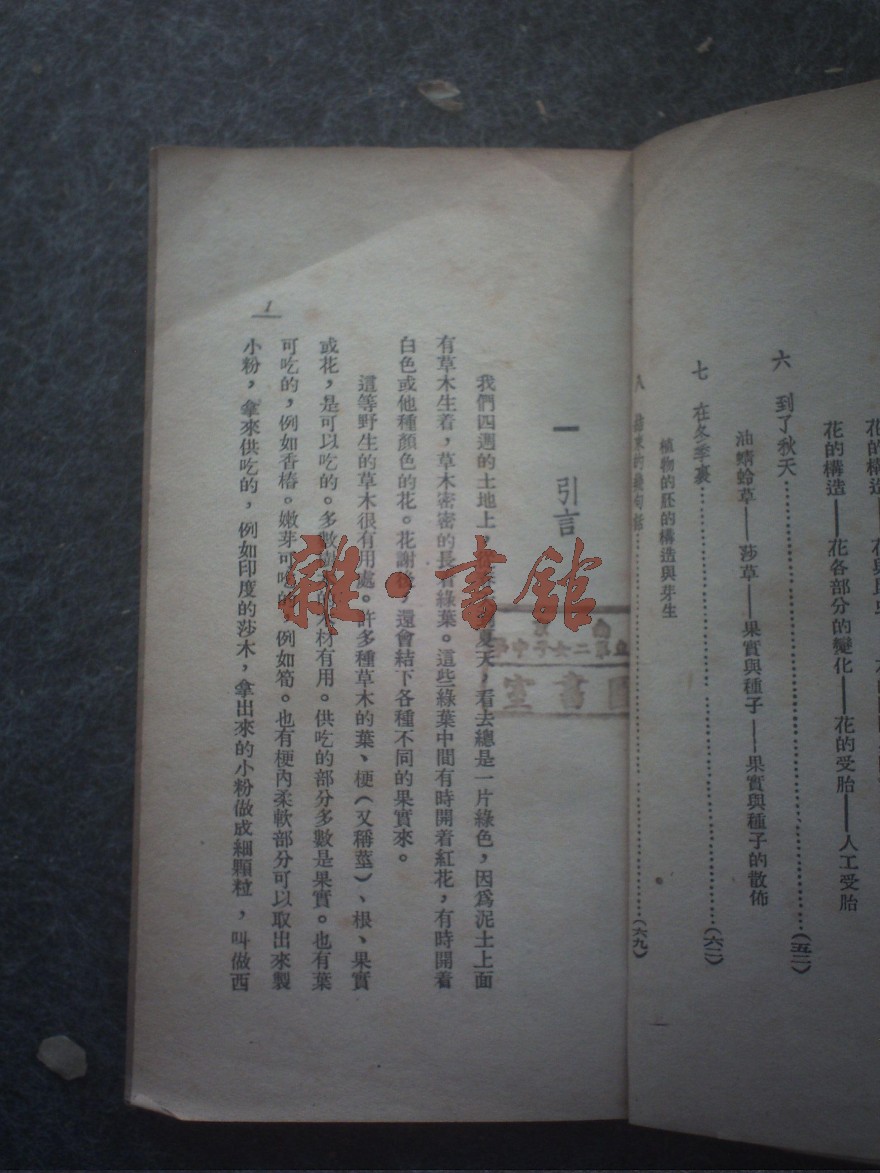 花的構造——花與
花的構造——花各部分的變化——花的受胎——人工受胎
六 到了秋天………(五二)
油蜻蛉草——莎草——果實與種子——果實與種子的散佈
七 在冬季裏………(六二)
植物的胚的構造與芽生
八 結束的幾句話………(六九)
一
一 引言
我們四週的土地上，夏天，看去總是一片綠色，因爲泥土上面
有草木生着，草木密密的長着綠葉。這些綠葉中間有時開着紅花，有時開着
白色或他種顏色的花。花謝後，還會結下各種不同的果實來。
這等野生的草木很有用處。許多種草木的葉、梗（又稱莖）、根、果實
或花，是可以吃的。多數材有用。供吃的部分多數是果實。也有葉
可吃的，例如香椿。嫩芽可吃的，例如筍。也有梗內柔軟部分可以取出來製
小粉，拿來供吃的，例如印度的莎木，拿出來的小粉做成細顆粒，叫做西
1
雜·書館
第二女子中學
圖書室